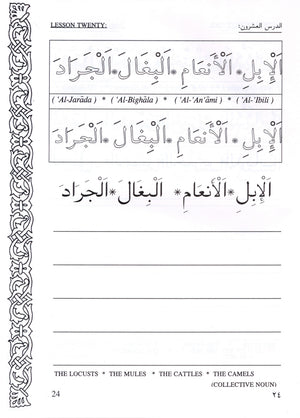 LESSON TWENTY: الدرس العشرون:
الْإِبِلِ * الْأَنعَامِ * الْبِغَالَ * الْجَرَادَ
('Al-Jarāda) * ('Al-Bighāla) * ('Al-'An'āmi) * ('Al-'Ibili)
الْإِبِلِ * الْأَنعَامِ * الْبِغَالَ * الْجَرَادَ
الْإِبِلِ * الْأَنعَامِ * الْبِغَالَ * الْجَرَادَ
THE LOCUSTS * THE MULES * THE CATTLES * THE CAMELS
(COLLECTIVE NOUN)
24 ٢٤